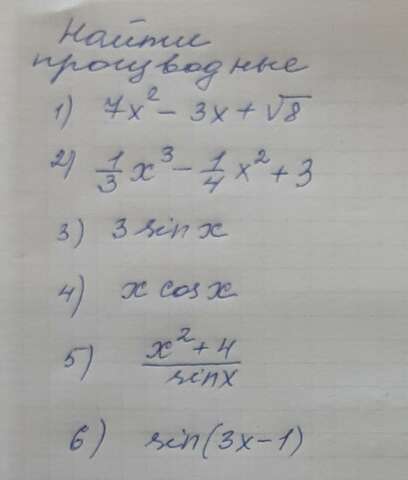 Найти
производные
1) 7x² - 3x + √8
2) 1/3 x³ - 1/4 x² + 3
3) 3 sin x
4) x cos x
5) (x² + 4)/(sin x)
6) sin(3x-1)